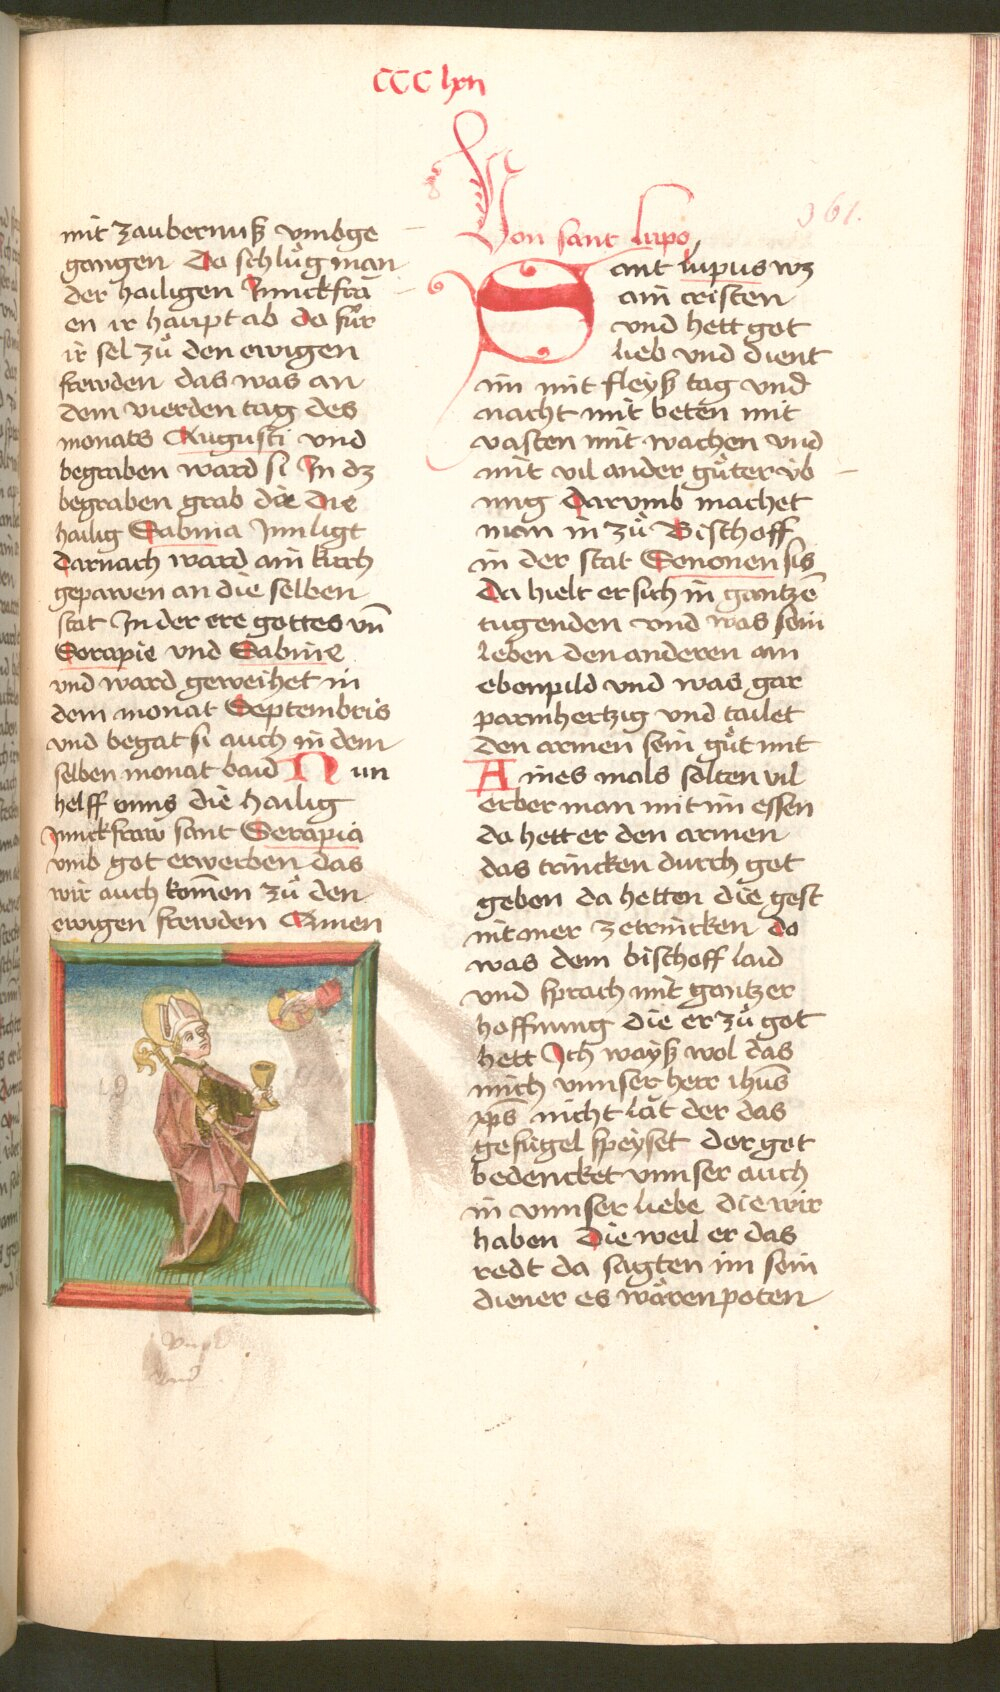 CCC lxii
361.
mit zaubernuß vmbge
gangen Da schlůg man
der hailigen Junckfra
en ir haupt ab do fůr
ir sel zů den ewigen
frewden das was an
dem vierden tag des
monats Augusti vnd
begraben ward si In dz
begraben grab die Die
hailig Sabina Jnn ligt
Darnach ward ain kirch
gepawen an die selben
stat In der ere gottes vn̄
Serapie vnd Sabine
vnd ward geweihet in
dem monat Septembris
vnd begat si auch in dem
selben monat baid Nun
helff vnns die hailig
Junckfraw sant Serapia
vmb got erwerben das
wir auch kom̄en zů den
ewigen frewden Amen
Von sant Lupo
Sant lupus wz
ain cristen
vnd hett got
lieb vnd dient
im mit fleyß tag vnd
nacht mit beten mit
vasten mit wachen vnd
mit vil ander gůter vͤb
nng Darvmb machet
man in zů Bischoff
in der stat Senonensis
Da hielt er sich in gantzē
tugenden vnd was sein
leben den anderen ain
ebenpild vnd was gar
parmhertzig vnd tailet
den armen sein gůt mit
Aines mals solten vil
erber man mit im essen
da hett er den armen
das trincken durch got
geben da hetten die gest
nit mer ze trincken do
was dem bischoff laid
vnd sprach mit gantzer
hoffnung die er zů got
hett Ich wayß wol das
mich vnnser herr ihūs
xp̄s nicht lat der das
gefugel speyset der got
bedencket vnnser auch
in vnnser liebe die wir
haben Die weil er das
redt da sagten im sein
diener es wären poten